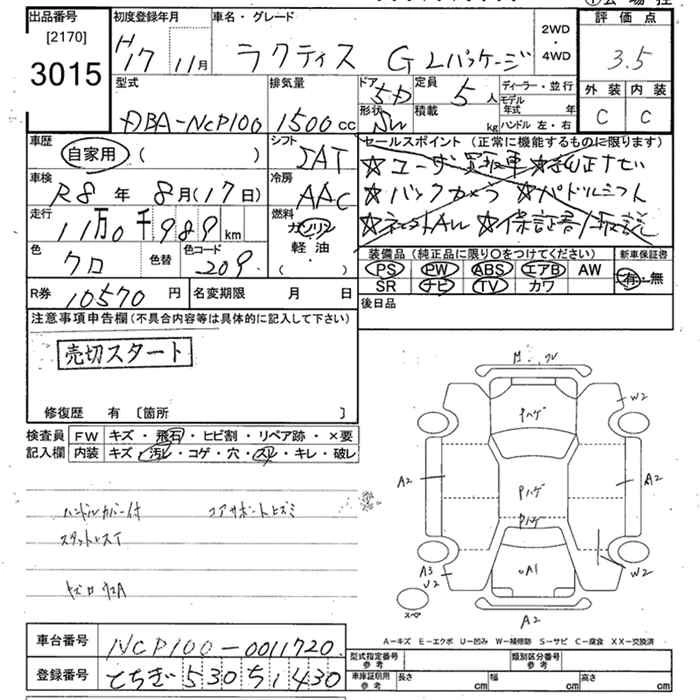 出品番号 初度登録年月 車名・グレード 2WD・4WD 評価点
[2170]
3015 H17 11月 ラクティス G Lパッケージ 3.5
型式 排気量 ドア 5D 定員 5人 ディーラー・並行 外装 内装
DBA-NCP100 1500cc 形状 SW 積載 kg モデル年式 年 C C
ハンドル 左・右
車歴 自家用 ( ) シフト IAT セールスポイント(正常に機能するものに限ります)
☆ユーザー買取車☆純正ナビ
車検 R8年 8月(17日) 冷房 AAC ☆バックカメラ ☆パドルシフト
走行 11万0千989km 燃料 ガソリン 軽油 ( ・ ) ☆ ☆保証書
色 クロ 色替 色コード 209 装備品(純正品に限り○をつけてください) 新車保証書
PS PW ABS エアB AW 有・無
R券 10570円 名変期限 月 日 SR ナビ TV カワ
注意事項申告欄(不具合内容等は具体的に記入して下さい) 後日品
売切スタート
修復歴 有 〔箇所 〕
検査員 FW キズ・飛石・ヒビ割・リペア跡・×要
記入欄 内装 キズ・汚レ・コゲ・穴・スレ・キレ・破レ
W2
Pハゲ
A2 A2
Pハゲ
Pハゲ
ハンドルカバー付 コアサポートヒズミ
スタットレスタイ
A3
U2 A1 W2
スペア
A2
A-キズ E-エクボ U-凹み W-補修跡 S-サビ C-腐食 XX-交換済
車台番号 NCP100-0011720
登録番号 とちぎ 530 ち 1430 型式指定番号 参考 類別区分番号 参考
車庫証明用 参考 長さ cm 幅 cm 高さ cm